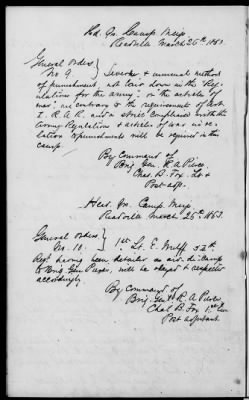 Hd. Qrs. Camp Meigs
Readville March 25th 1863.
General Orders
No 9. } Severe & unusual methods
of punishment, not laid down in the Reg-
ulations for the army, or the articles of
war, are contrary to the requirements of
and a strict compliance with the
Army Regulations & articles of war in re-
lation to punishments will be required in this
camp.
By Command of
Brig. Genl. R. A. Peirce
Chas. B. Fox Lt &
Post adjt.
Head Qrs. Camp Meigs
Readville March 25th 1863.
General Orders
No. 10. } 1st Lt. E.
Regt having been detailed as aid-de-camp
to Brig. Genl Peirce, will be obeyed & respected
accordingly
By Command of
Brig. Genl R. A. Peirce
Chas B. Fox 1st Lieu
Post adjutant.